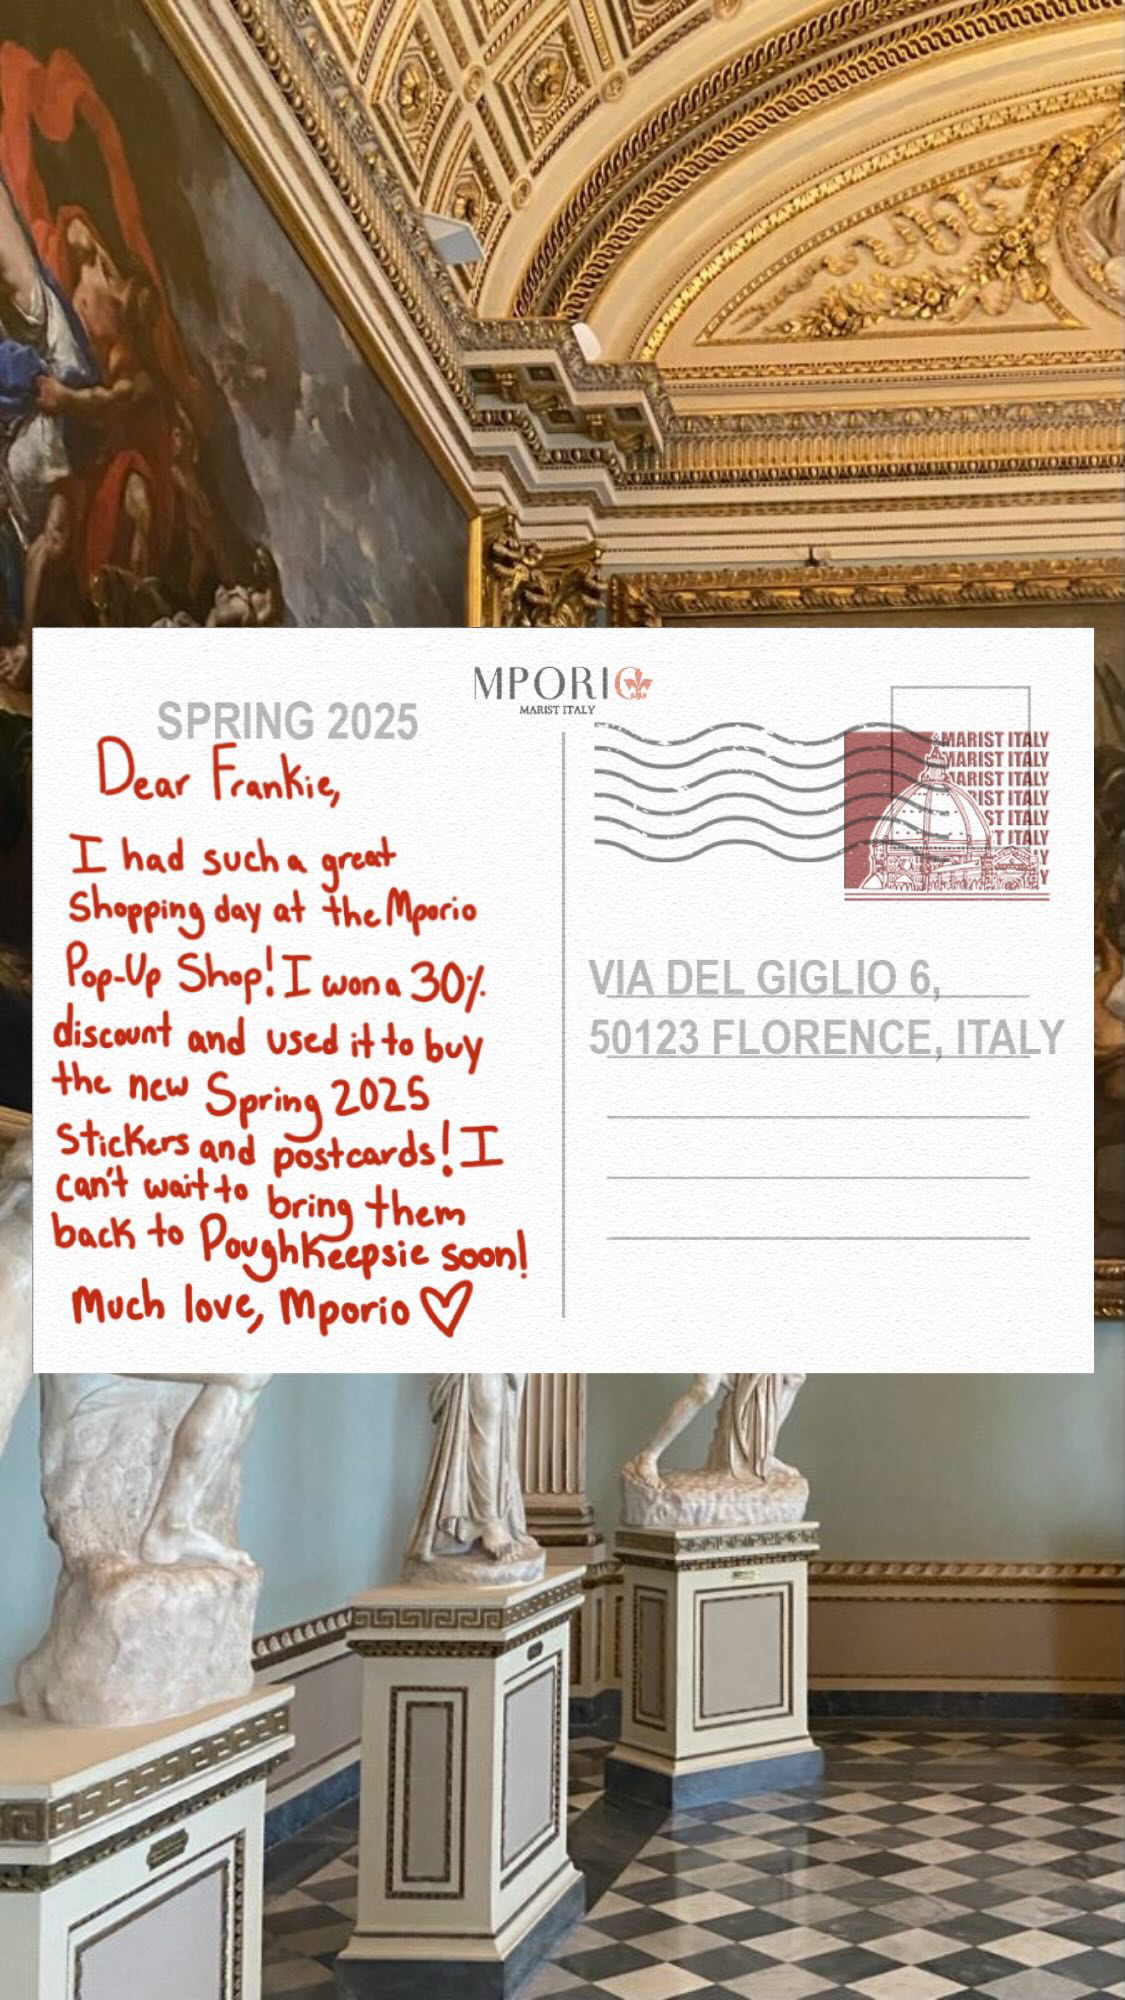 MPORIO
MARIST ITALY
SPRING 2025
Dear Frankie,
I had such a great
Shopping day at the Mporio
Pop-Up Shop! I won a 30%
discount and used it to buy
the new Spring 2025
Stickers and postcards! I
can't wait to bring them
back to Poughkeepsie soon!
Much love, Mporio
MARIST ITALY
MARIST ITALY
MARIST ITALY
RIST ITALY
ST ITALY
T ITALY
Y
Y
VIA DEL GIGLIO 6,
50123 FLORENCE, ITALY